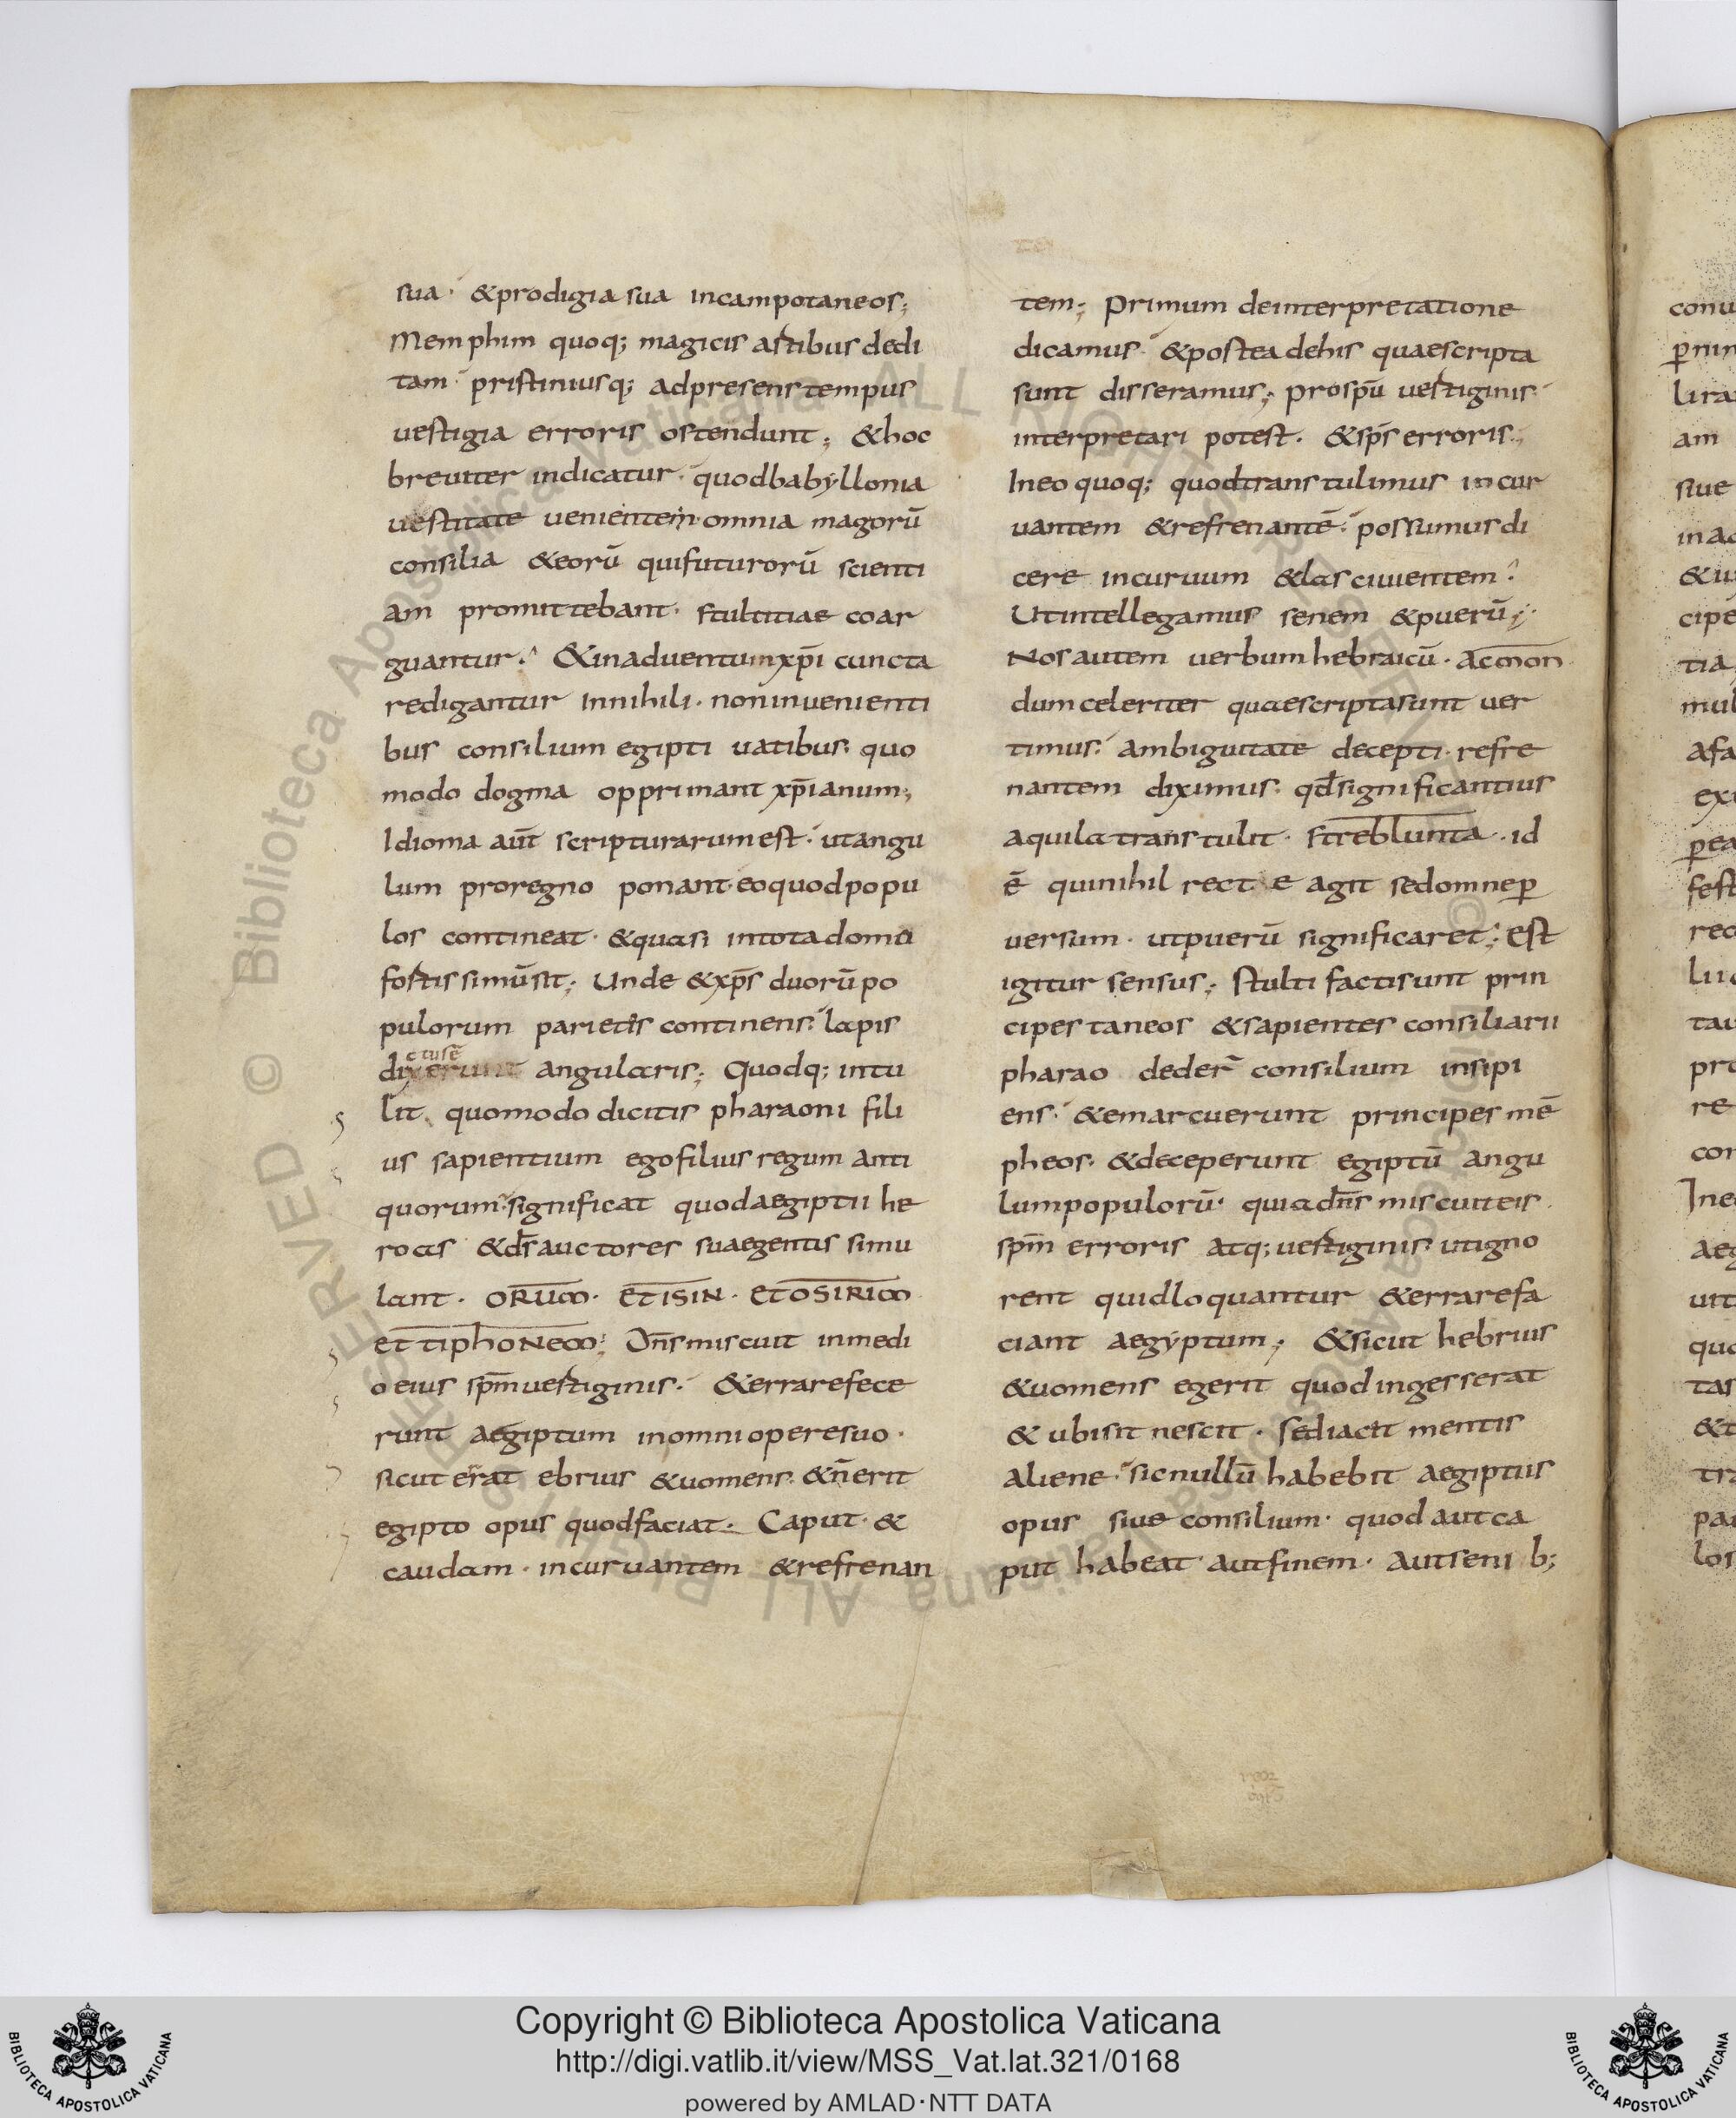 sua· &prodigia sua incampotaneos;
Memphim quoq; magicis artibus dedi
tam· pristiniusq; adpresens tempus
uestigia erroris ostendunt; &hoc
breuiter indicatur· quodbabyllonia
uestitate uenientem·omnia magorū
consilia &eorū quifuturorū scienti
am promittebant· stultitiae coar
guantur· &inaduentum xp̄i cuncta
redigantur innihili· noninuenienti
bus consilium egipti uatibus· quo
modo dogma opprimant xp̄ianum;
Idioma aut̄ scripturarum est· utangu
lum proregno ponant·eoquodpopu
los contineat· &quasi intota domo
fortissimūsit; Unde &xp̄s duorū po
pulorum parietes continens· lapis
ctusē
angularis; Quodq; intu
lit quomodo dicitis pharaoni fili
us sapientium egofilius regum anti
quorum·significat quodaegiptii he
roas &dō̄s auctores suaegentis simu
lant· ORUM· ET ISIN· ET OSIRIM
et tiphonem; Dn̄s miscuit inmedi
o eius spm̄ uertiginis· &errarefece
runt aegiptum inomnioperesuo·
sicut errat ebrius &uomens· &n̄erit
egipto opus quodfaciat· Caput· &
caudam· incuruantem &refrenan
tem; Primum deinterpretatione
dicamus· &postea dehis quaescripta
sunt disseramus; prospū uertiginis·
interpretari potest· &sps̄ erroris;
Ineo quoq; quodtranstulimus incur
uantem &refrenantē· possumus di
cere incuruum &lasciuientem·
Utintellegamus senem &puerū;
Nos autem uerbum hebraicū· acmon
dum celeriter quaescriptasunt uer
timus· ambiguitate decepti· refre
nantem diximus· qd̄ significantius
aquila transtulit· streblunta· id
ē quinihil recte agit sedomne ꝑ
uersum· utpuerū significaret; Est
igitur sensus; Stulti factisunt prin
cipes taneos &sapientes consiliarii
pharao deder̄ consilium insipi
ens· &emarcuerunt principes mē
pheos· &deceperunt egiptū angu
lumpopulorū· quia dn̄s miscuiteis
spm̄ erroris atq; uertiginis· utigno
rent quidloquantur &errarefa
ciant aegyptum; &sicut hebrius
&uomens egerit quod ingesserat
& ubisit nescit· sediacit mentis
aliene· sicnullū habebit aegiptiis
opus siue consilium· quod autca
put habeat· autfinem· autseni b;
Copyright © Biblioteca Apostolica Vaticana
http://digi.vatlib.it/view/MSS_Vat.lat.321/0168
powered by AMLAD·NTT DATA
BIBLIOTECA APOSTOLICA VATICANA
BIBLIOTECA APOSTOLICA VATICANA